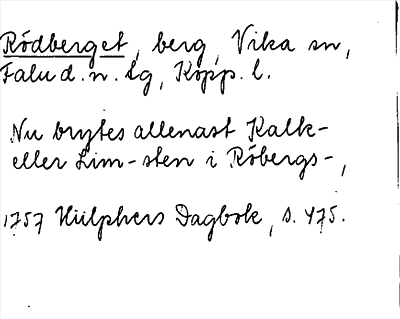 Rödberget, berg, Vika sn,
Falu d. n. tg, Kopp. l.
Nu brytes allenast Kalk-
eller Lim-sten i Röbergs-,
1757 Hülphers Dagbok, s. 475.